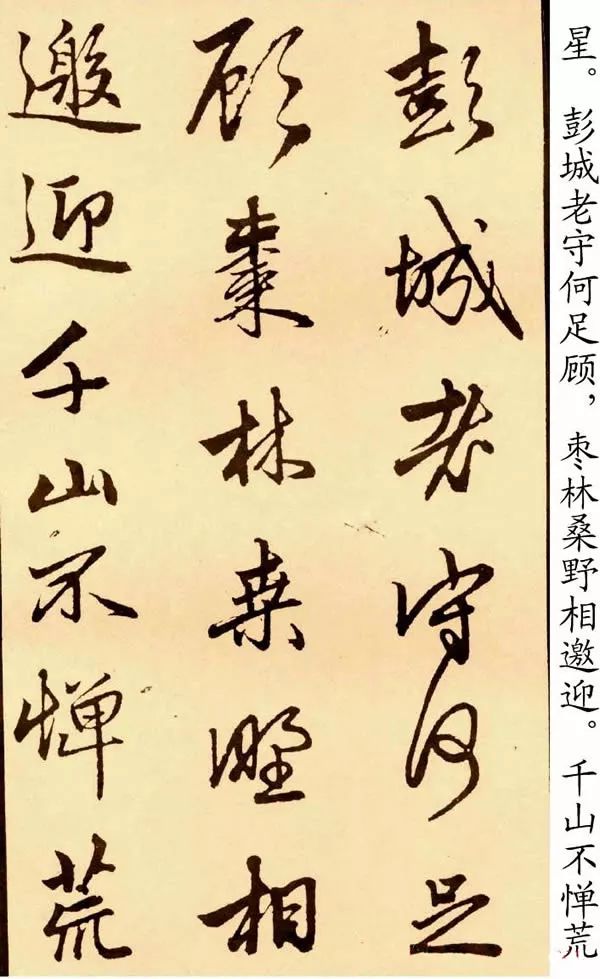 星。彭城老守何足顾，枣林桑野相邀迎。千山不惮荒
彭城老守何足
顧棗林桒野相
邀迎千山不憚荒